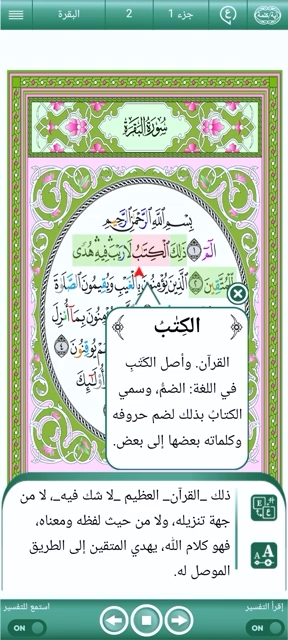 البقرة
2
جزء 1
سُورَةُ البَقَرَةِ
بِسْمِ اللَّهِ الرَّحْمَٰنِ الرَّحِيمِ
الٓمٓ ١ ذَٰلِكَ الْكِتَٰبُ لَا رَيْبَ فِيهِ هُدًى
لِّلْمُتَّقِينَ ٢ الَّذِينَ يُؤْمِنُونَ بِالْغَيْبِ وَيُقِيمُونَ الصَّلَوٰةَ
بِمَآ أُنزِلَ
يُوقِنُونَ ٤
أُوْلَٰٓئِكَ
الكِتَٰبُ
القرآن. وأصل الكَتْبِ
في اللغة: الضمُّ، وسمي
الكتابُ بذلك لضم حروفه
وكلماته بعضها إلى بعض.
ذلك _القرآن_ العظيم _لا شك فيه_، لا من
جهة تنزيله، ولا من حيث لفظه ومعناه،
فهو كلام الله، يهدي المتقين إلى الطريق
الموصل له.
استمع للتفسير
إقرأ التفسير
ON
ON